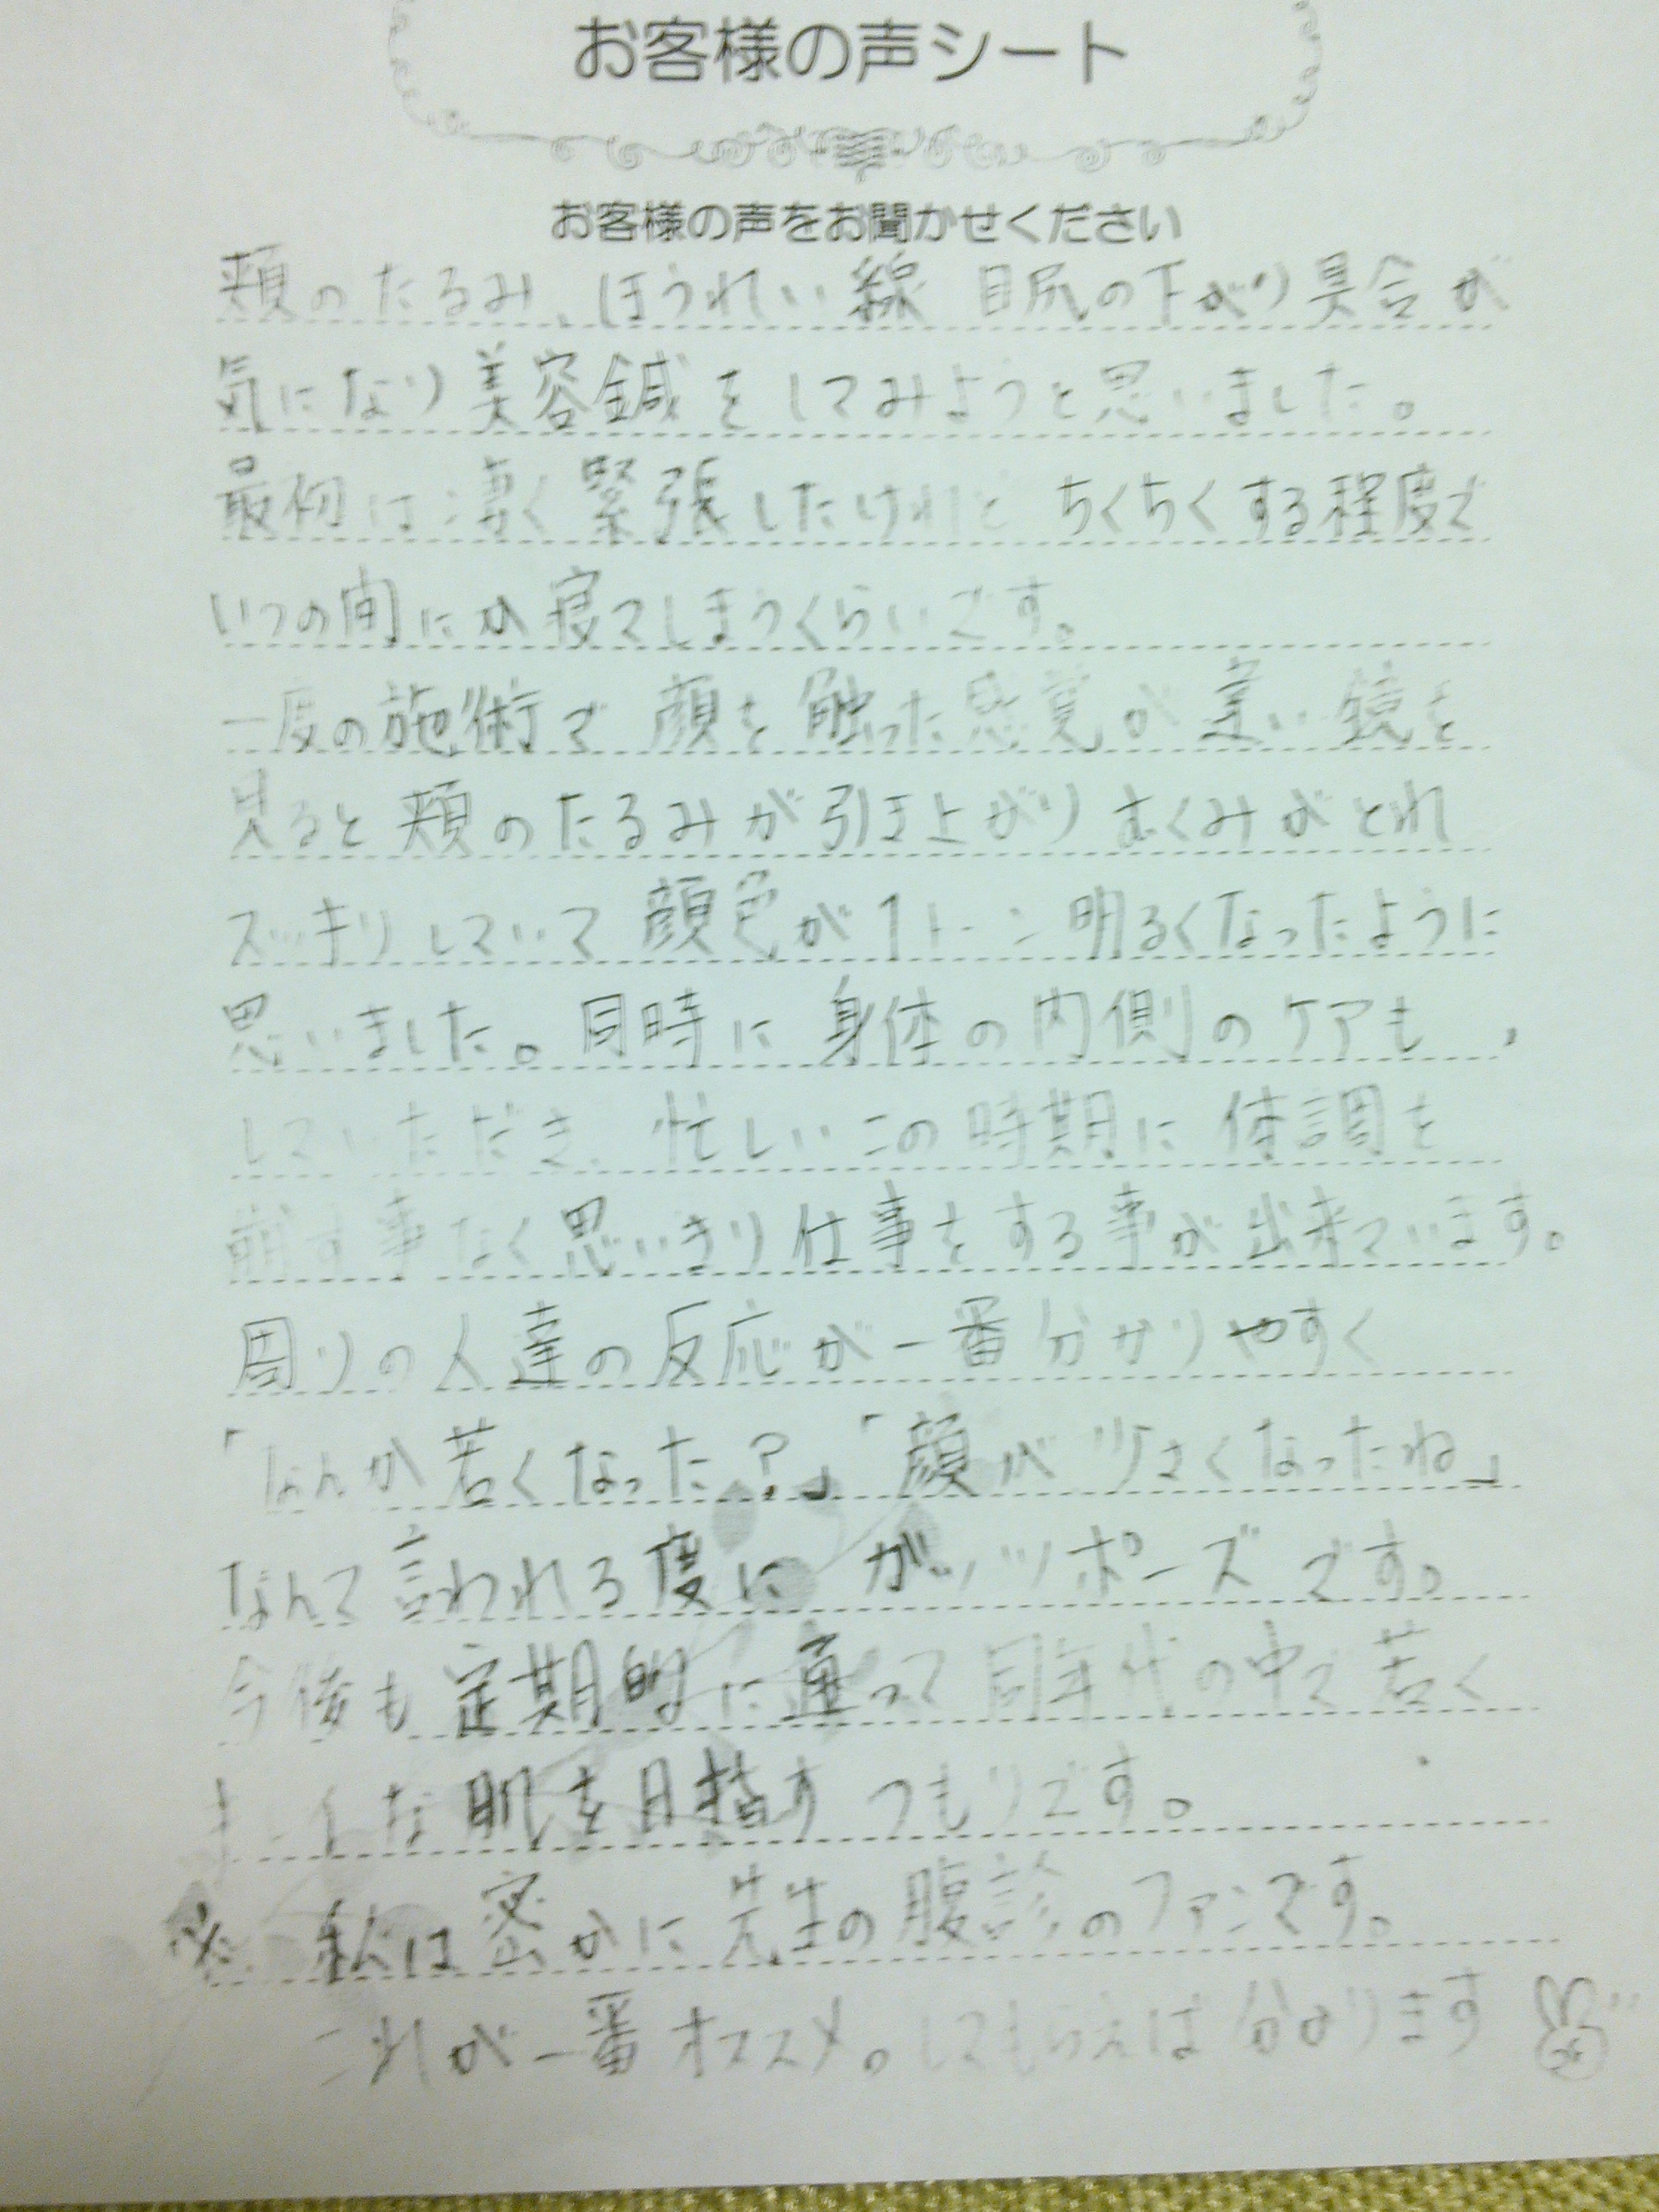 お客様の声シート
お客様の声をお聞かせください
頬のたるみ、ほうれい線 目尻の下がり具合が
気になり美容鍼をしてみようと思いました。
最初は凄く緊張したけれど ちくちくする程度で
いつの間にか寝てしまうくらいです。
一度の施術で 顔を触った感覚が違い鏡を
見ると頬のたるみが引き上がり むくみがとれ
スッキリしていて顔色が1トーン明るくなったように
思いました。同時に身体の内側のケアも
していただき、忙しいこの時期に体調を
崩す事なく思いきり仕事をする事が出来ています。
周りの人達の反応が一番分かりやすく
「なんか若くなった?」「顔が小さくなったね」
なんて言われる度に ガッツポーズです。
今後も定期的に通って同年代の中で若く
キレイな肌を目指すつもりです。
※ 私は密かに先生の腹診のファンです。
これが一番オススメ。してもらえば分かります